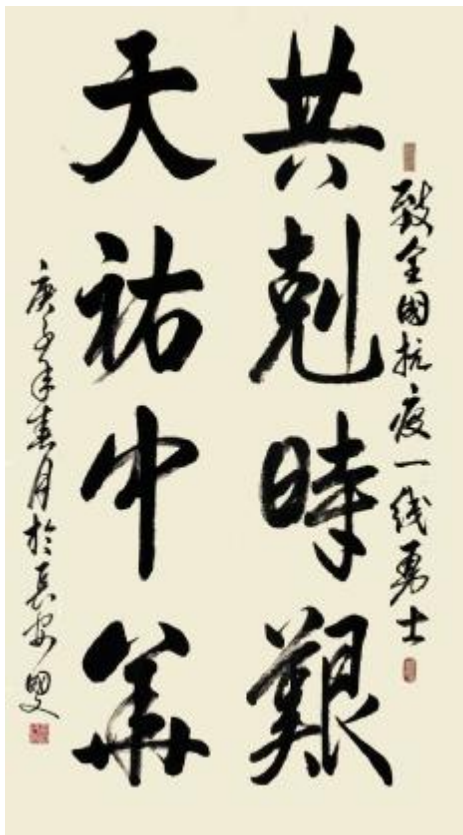 致全國抗疫一线勇士
共剋時艱
天祐中華
庚子年春月於長安